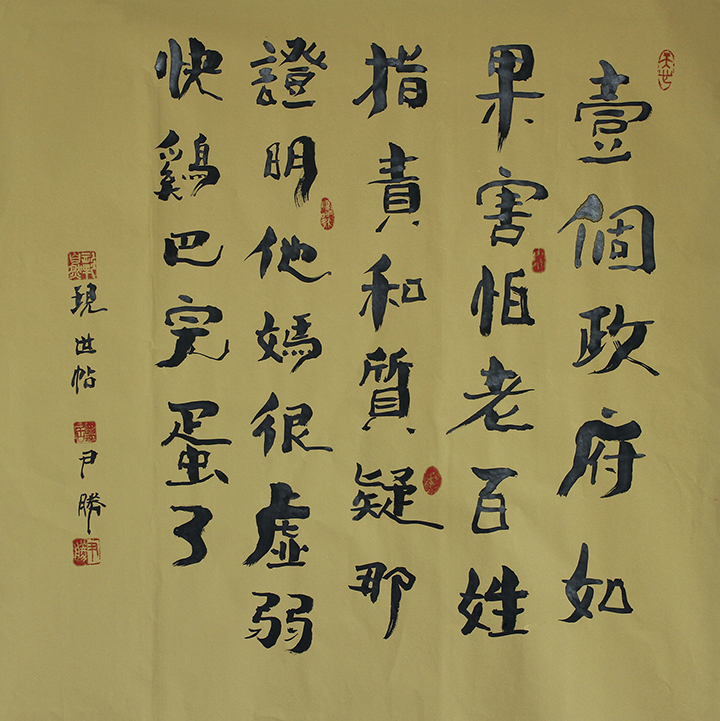 壹個政府如
果害怕老百姓
指責和質疑那
證明他媽很虛弱
快鷄巴完蛋了
現世帖 尹勝